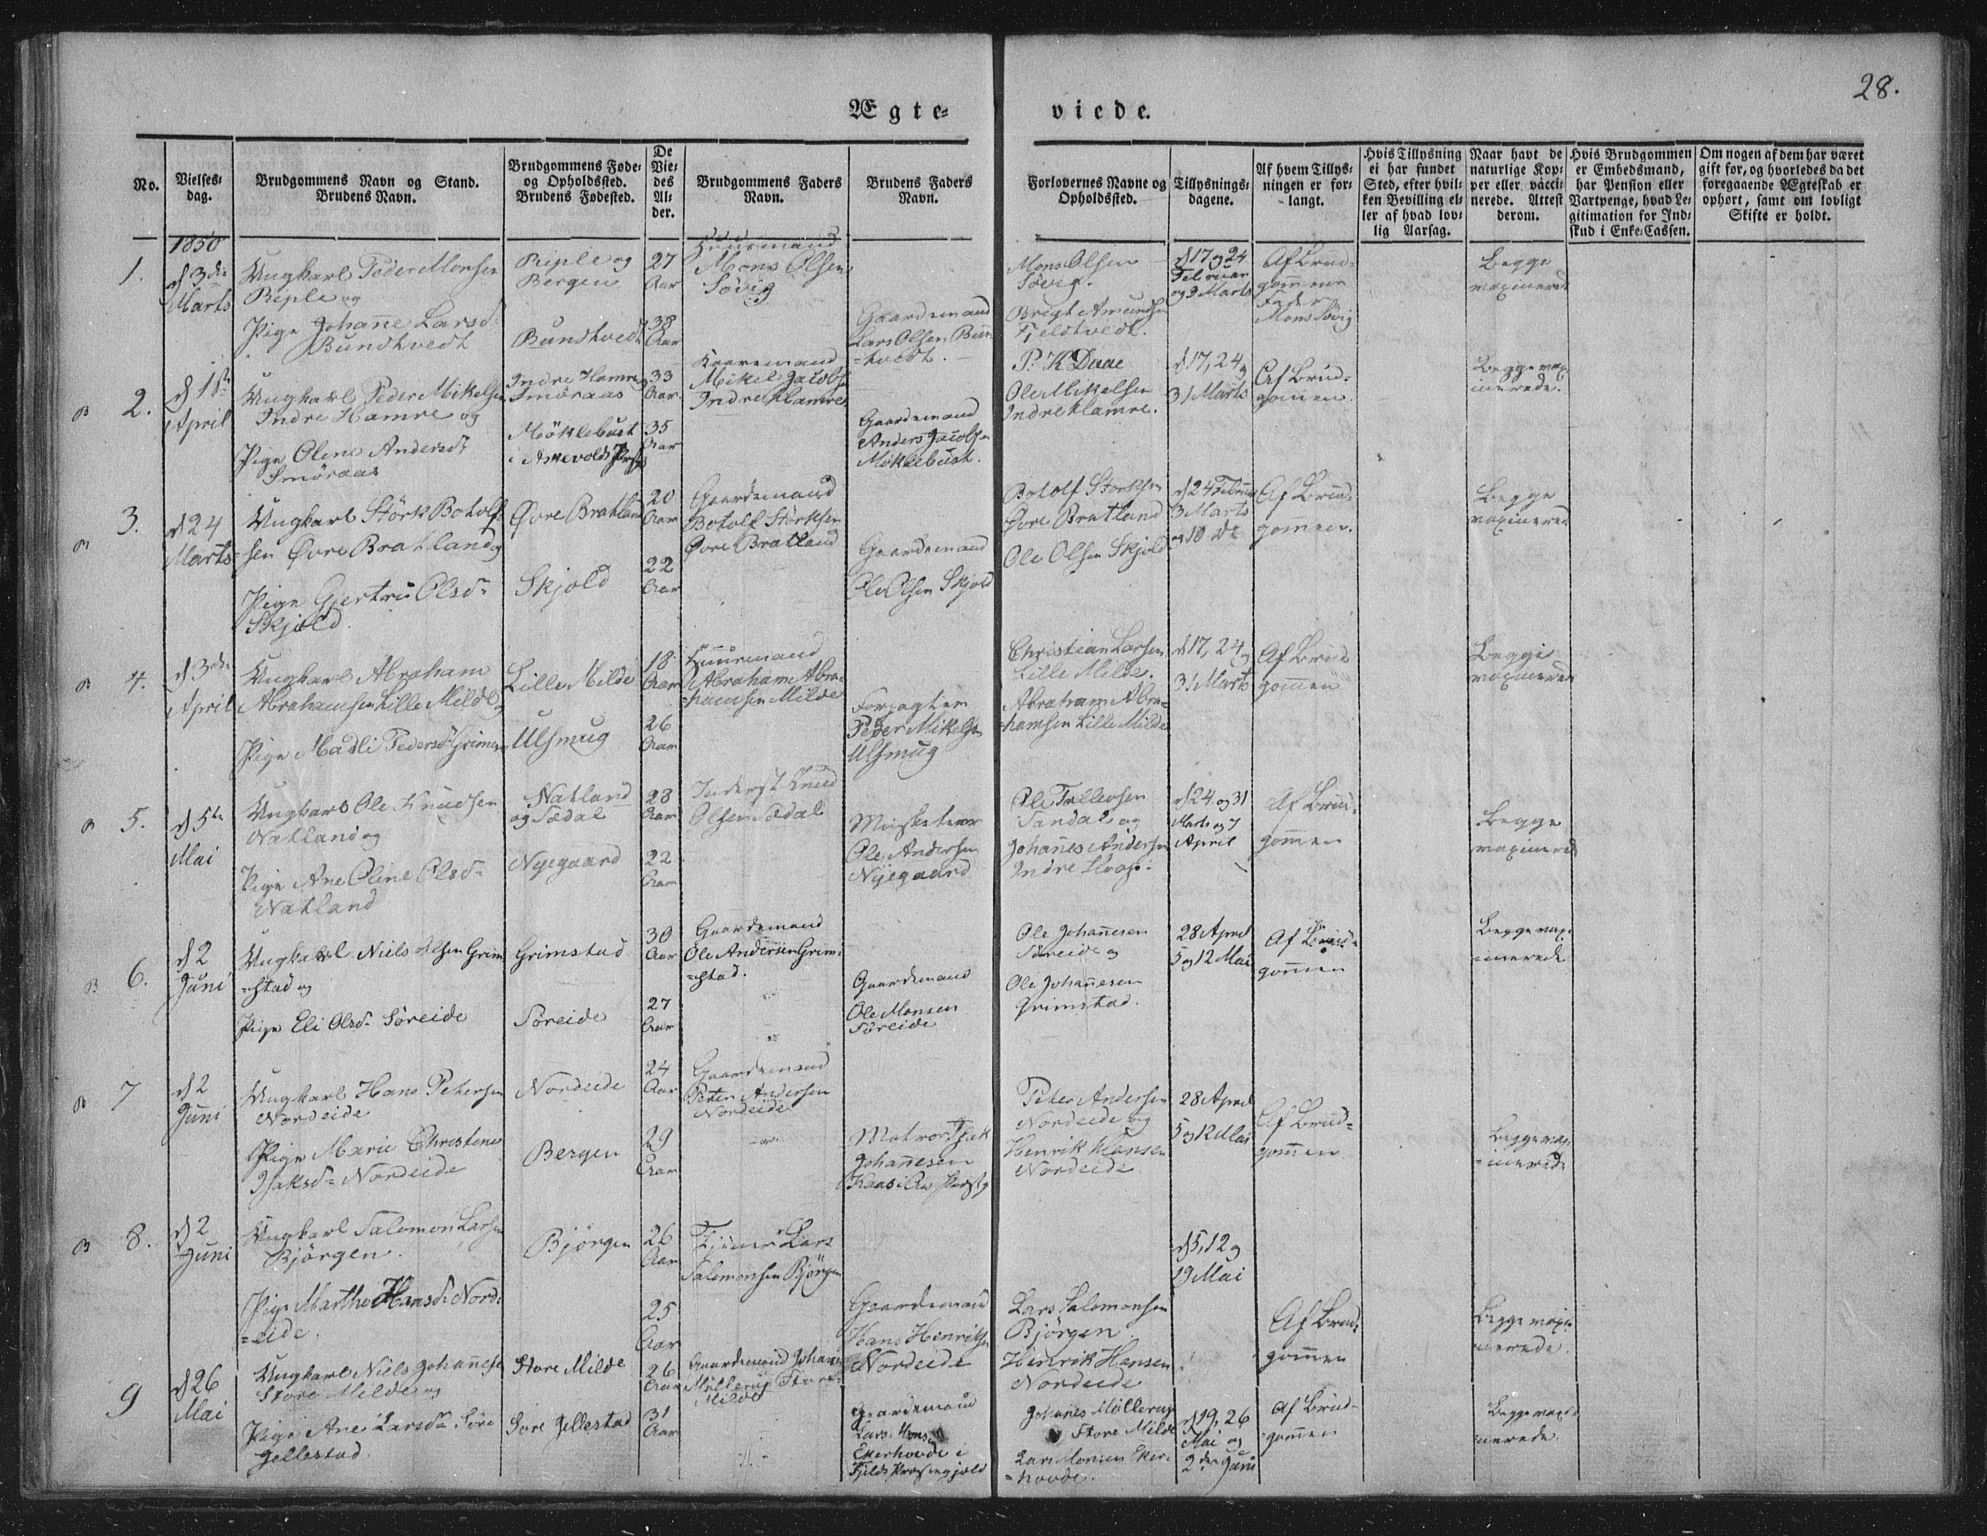 28.
Ægte-
viede.
No.
Vielses-
dag.
Brudgommens Navn og Stand.
Brudens Navn.
Brudgommens Føde-
og Opholdssted.
Brudens Fødested.
De
Vie-
des
Al-
der.
Brudgommens Faders
Navn.
Brudens Faders
Navn.
Forlovernes Navne og
Opholdssted.
Tillysnings-
dagene.
Af hvem Tillys-
ningen er for-
langt.
Hvis Tillysning
ei har fundet
Sted, efter hvil-
ken Bevilling el-
ler af hvad lov-
lig Aarsag.
Naar havt de
naturlige Kop-
per eller vacci-
nerede. Attest
derom.
Hvis Brudgommen
er Embedsmand,
har Pension eller
Vartpenge, hvad Le-
gitimation for Ind-
skud i Enke-Cassen.
Om nogen af dem har været
gift for, og hvorledes da det
foregaaende Ægteskab er
ophørt, samt om lovligt
Skifte er holdt.
1850
1.
d 3die
Marts
Ungkarl Peder Monsen
Riple og
Pige Johanne Larsd.
Bundtvedt
Riple og
Bergen
Bundtvedt
27
Aar
38
Aar
Huusmand
Mons Olsen
Søvig
Gaardemand
Lars Olsen Bun
-tvedt.
Mons Olsen
Søvig.
Brigt Amundsen
Fjeldtvedt.
d 17 og 24
Februar
og 3 Marts
Af Brud-
gommens
Fader
Mons Søvig
Begge
vaxinered
2.
d 1ste
April
Ungkarl Peder Mikelsen
Indre Hamre og
Pige Oline Andersd.
Smøraas
Indre Hamre
Smøraas
Møklebust
i Askevolds Præstg
33
Aar
35
Aar
Mikel Jacobs
Indre Hamre
Gaardemand
Anders Jacobsen
Møklebust.
P. K Daae
Ole Mikelsen
Indre Hamre.
d 17, 24 og
31 Marts
Af Brud-
gommen.
Begge vax-
inerede.
3.
d 24
Marts
Ungkarl Størk Botolf-
sen Øvre Bratland og
Pige Gjertru Olsd.
Skjold.
Øvre Bratland
Skjold
20
Aar
22
Aar
Gaardemand
Botolf Størksen
Øvre Bratland
Gaardemand
Ole Olsen Skjold
Botolf Størksen
Øvre Bratland
Ole Olsen Skjold
d 24 Februar
3 Marts
og 10 de
Af Brud-
gommen.
Begge
vaxinered
4.
d 3die
April
Ungkarl Abraham
Abrahamsen Lille Milde og
Pige Madli Pedersd. Grimen
Lille Milde
Ulsmug
18
Aar
26
Aar
Huusmand
Abraham Abra-
hamsen Milde
Forpagter
Peder Mikelsen
Ulsmug
Christian Larsen
Lille Milde.
Abraham Abra-
hamsen Lille Milde
d 17, 24 og
31 Marts
Af Brud
gommen
Begge
vaxinered
5.
d 5te
Mai
Ungkarl Ole Knudsen
Natland og
Pige Ane Oline Olsd.
Natland
Natland
og Sædal
Nyegaard
28
Aar
22
Aar
Inderst Knud
Olsen Sædal
Musketeer
Ole Andersen
Nyegaard
Ole Tollevsen
Sandal og
Johanes Andersen
Indre Hop.
d 24 og 31
Marts og 7
April
Af Brud-
gommen
Begge
vaxinered
6.
d 2
Juni
Ungkarl Niels Olsen Grim
-stad og
Pige Eli Olsd. Søreide
Grimstad
Søreide
30
Aar
27
Aar
Gaardemand
Ole Andersen Grim
-stad.
Gaardemand
Ole Monsen
Søreide
Ole Johannesen
Søreide og
Ole Johannesen
Grimstad.
28 April
5 og 12 Mai
Af Brud-
gommen
Begge vaxi
-nerede
7
d 2
Juni
Ungkarl Hans Petersen
Nordeide
Pige Marie Christine
Isaksd. Nordeide
Nordeide
Bergen
24
Aar
29
Aar
Gaardemand
Peter Andersen
Nordeide
Matros Isak
Johannesen
Peter Andersen
Nordeide og
Henrik Hansen
Nordeide
28 April
5 og 12 Mai
Af Brud-
gommen
Begge vaxi
-nerede
8.
d 2
Juni
Ungkarl Salomon Larsen
Bjørgen.
Pige Marthe Hansd. Nord-
-eide.
Bjørgen
26
Aar
25
Aar
Lars
Salomonsen Bjørgen
Gaardemand
Hans Henriksen
Nordeide
Lars Salomonsen
Bjørgen.
Henrik Hansen
Nordeide
d 5, 12 og
19 Mai
Af Brud-
gommen
Begge vaxi-
nerede.
9
d 26
Mai
Ungkarl Niels Johannesen
Store Milde og
Pige Ane Larsd. Søre
Gellestad.
Store Milde
Søre Gellestad
26
Aar
31
Aar
Gaardemand Johanes
Møllerup Store
Milde
Gaardemand
Lars Mons
Ekerhovde i
Fjelds Præstegjæld
Johanes Møllerup
Store Milde
Lars Monsen Eker-
-hovde.
d 19, 26
Mai og
2den Juni
Af Brud-
-gommen
Begge vaxi
-nerede.